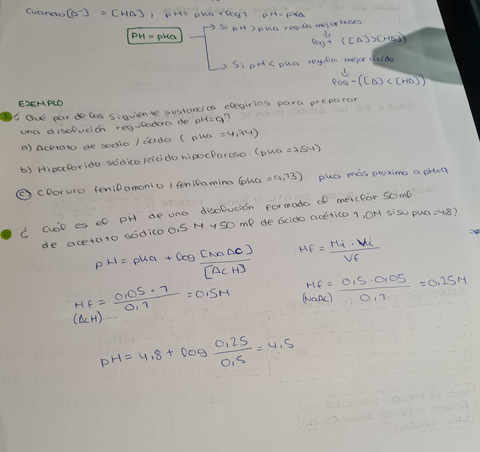 Cuando [A⁻] = [HA]; pH = pka + log 1 pH = pka
PH = pka
→ Si pH > pka regula mejor bases
↓
log + ([A] > [HA])
→ Si pH < pka regula mejor ácido
↓
log - ([A] < [HA])
EJEMPLO
¿Qué par de las siguiente sustancias elegirías para preparar
una disolución reguladora de pH = 9?
a) Acetato de sodio / ácido (pka = 4,74)
b) Hipoclorido sódico / ácido hipocloroso (pka = 7,54)
c) Cloruro fenilamonio / fenilamina (pka = 9,13) pka más proximo a pH=9
¿Cuál es el pH de una disolución formada al mezclar 50 ml
de acetato sódico 0,5 M y 50 ml de ácido acético 1,0M si su pka = 4,8?
pH = pka + log [NaAC] / [ACH]
Mf = Mi · Vi / Vf
Mf = 0,05 · 1 / 0,1 = 0,5M
(ACH)
Mf = 0,5 · 0,05 / 0,1 = 0,25M
(NaAc)
pH = 4,8 + log 0,25 / 0,5 = 4,5